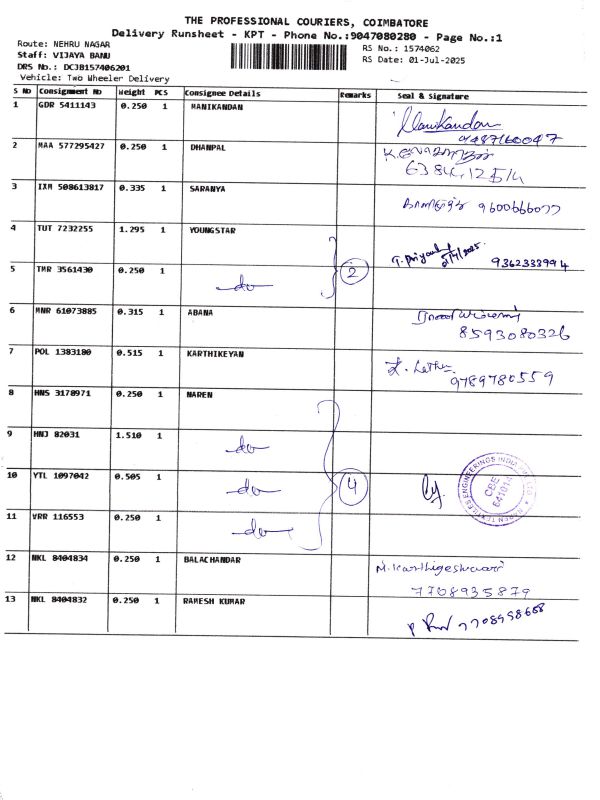 THE PROFESSIONAL COURIERS, COIMBATORE
Delivery Runsheet - KPT - Phone No.:9047080280 - Page No.:1
Route: NEHRU NAGAR
Staff: VIJAYA BANU
DRS No.: DCJB157406201
Vehicle: Two Wheeler Delivery
RS No.: 1574062
RS Date: 01-Jul-2025
S No Consignment No Weight PCS Consignee Details Remarks Seal & Signature
1 GDR 5411143 0.250 1 MANIKANDAN Manikandan
2 MAA 577295427 0.250 1 DHANPAL
3 IXM 508613817 0.335 1 SARANYA 9600666077
4 TUT 7232255 1.295 1 YOUNGSTAR
5 TMR 3561430 0.250 1 do 2 9362333994
6 MNR 61073885 0.315 1 ABANA 8593080326
7 POL 1383180 0.515 1 KARTHIKEYAN 9789780559
8 HNS 3178971 0.250 1 NAREN
9 HNJ 82031 1.510 1 do
10 YTL 1097042 0.505 1 do 4 CBE 641014
11 VRR 116553 0.250 1 do
12 NKL 8404834 0.250 1 BALACHANDAR M. Karthigeshwari 7708935879
13 NKL 8404832 0.250 1 RAMESH KUMAR